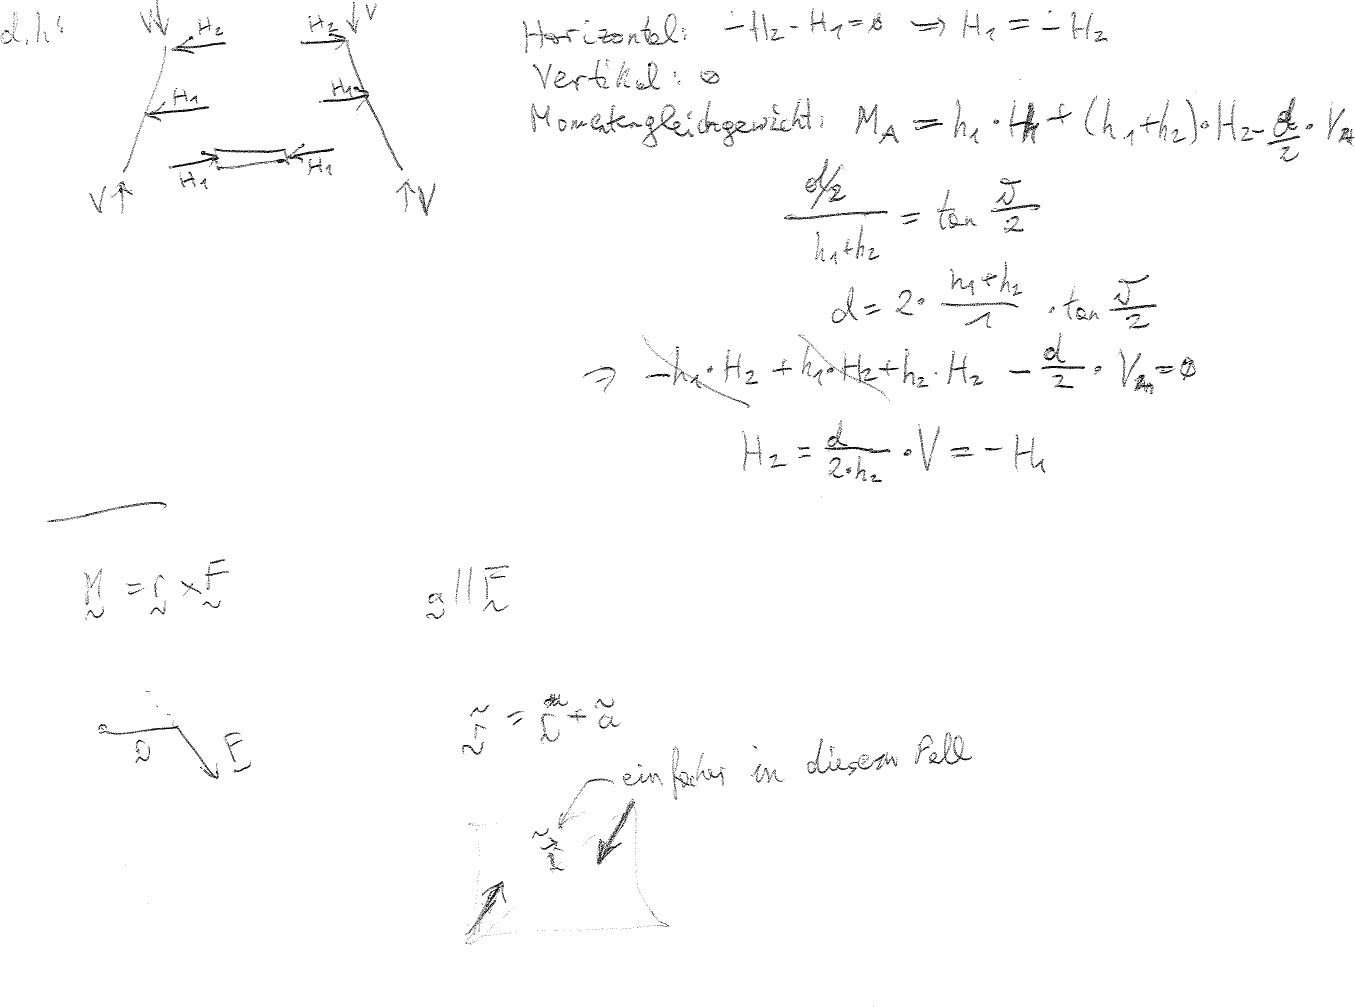 d.h:
V H₂ H₂ V
H₁ H₁
H₁ H₁
V V
Horizontal: -H₂ - H₁ = 0 ⟹ H₁ = -H₂
Vertikal: 0
Momentengleichgewicht: M_A = h₁ · H₁ + (h₁+h₂) · H₂ - d/2 · V
(d/2)/(h₁+h₂) = tan ϑ/2
d = 2 · (h₁+h₂)/1 · tan ϑ/2
⇒ -h₁ · H₂ + h₁ · H₂ + h₂ · H₂ - d/2 · V = 0
H₂ = d/(2·h₂) · V = -H₁
M = r × F
a || F
r F
r̃ = r + ã
einfacher in diesem Fall
r̃